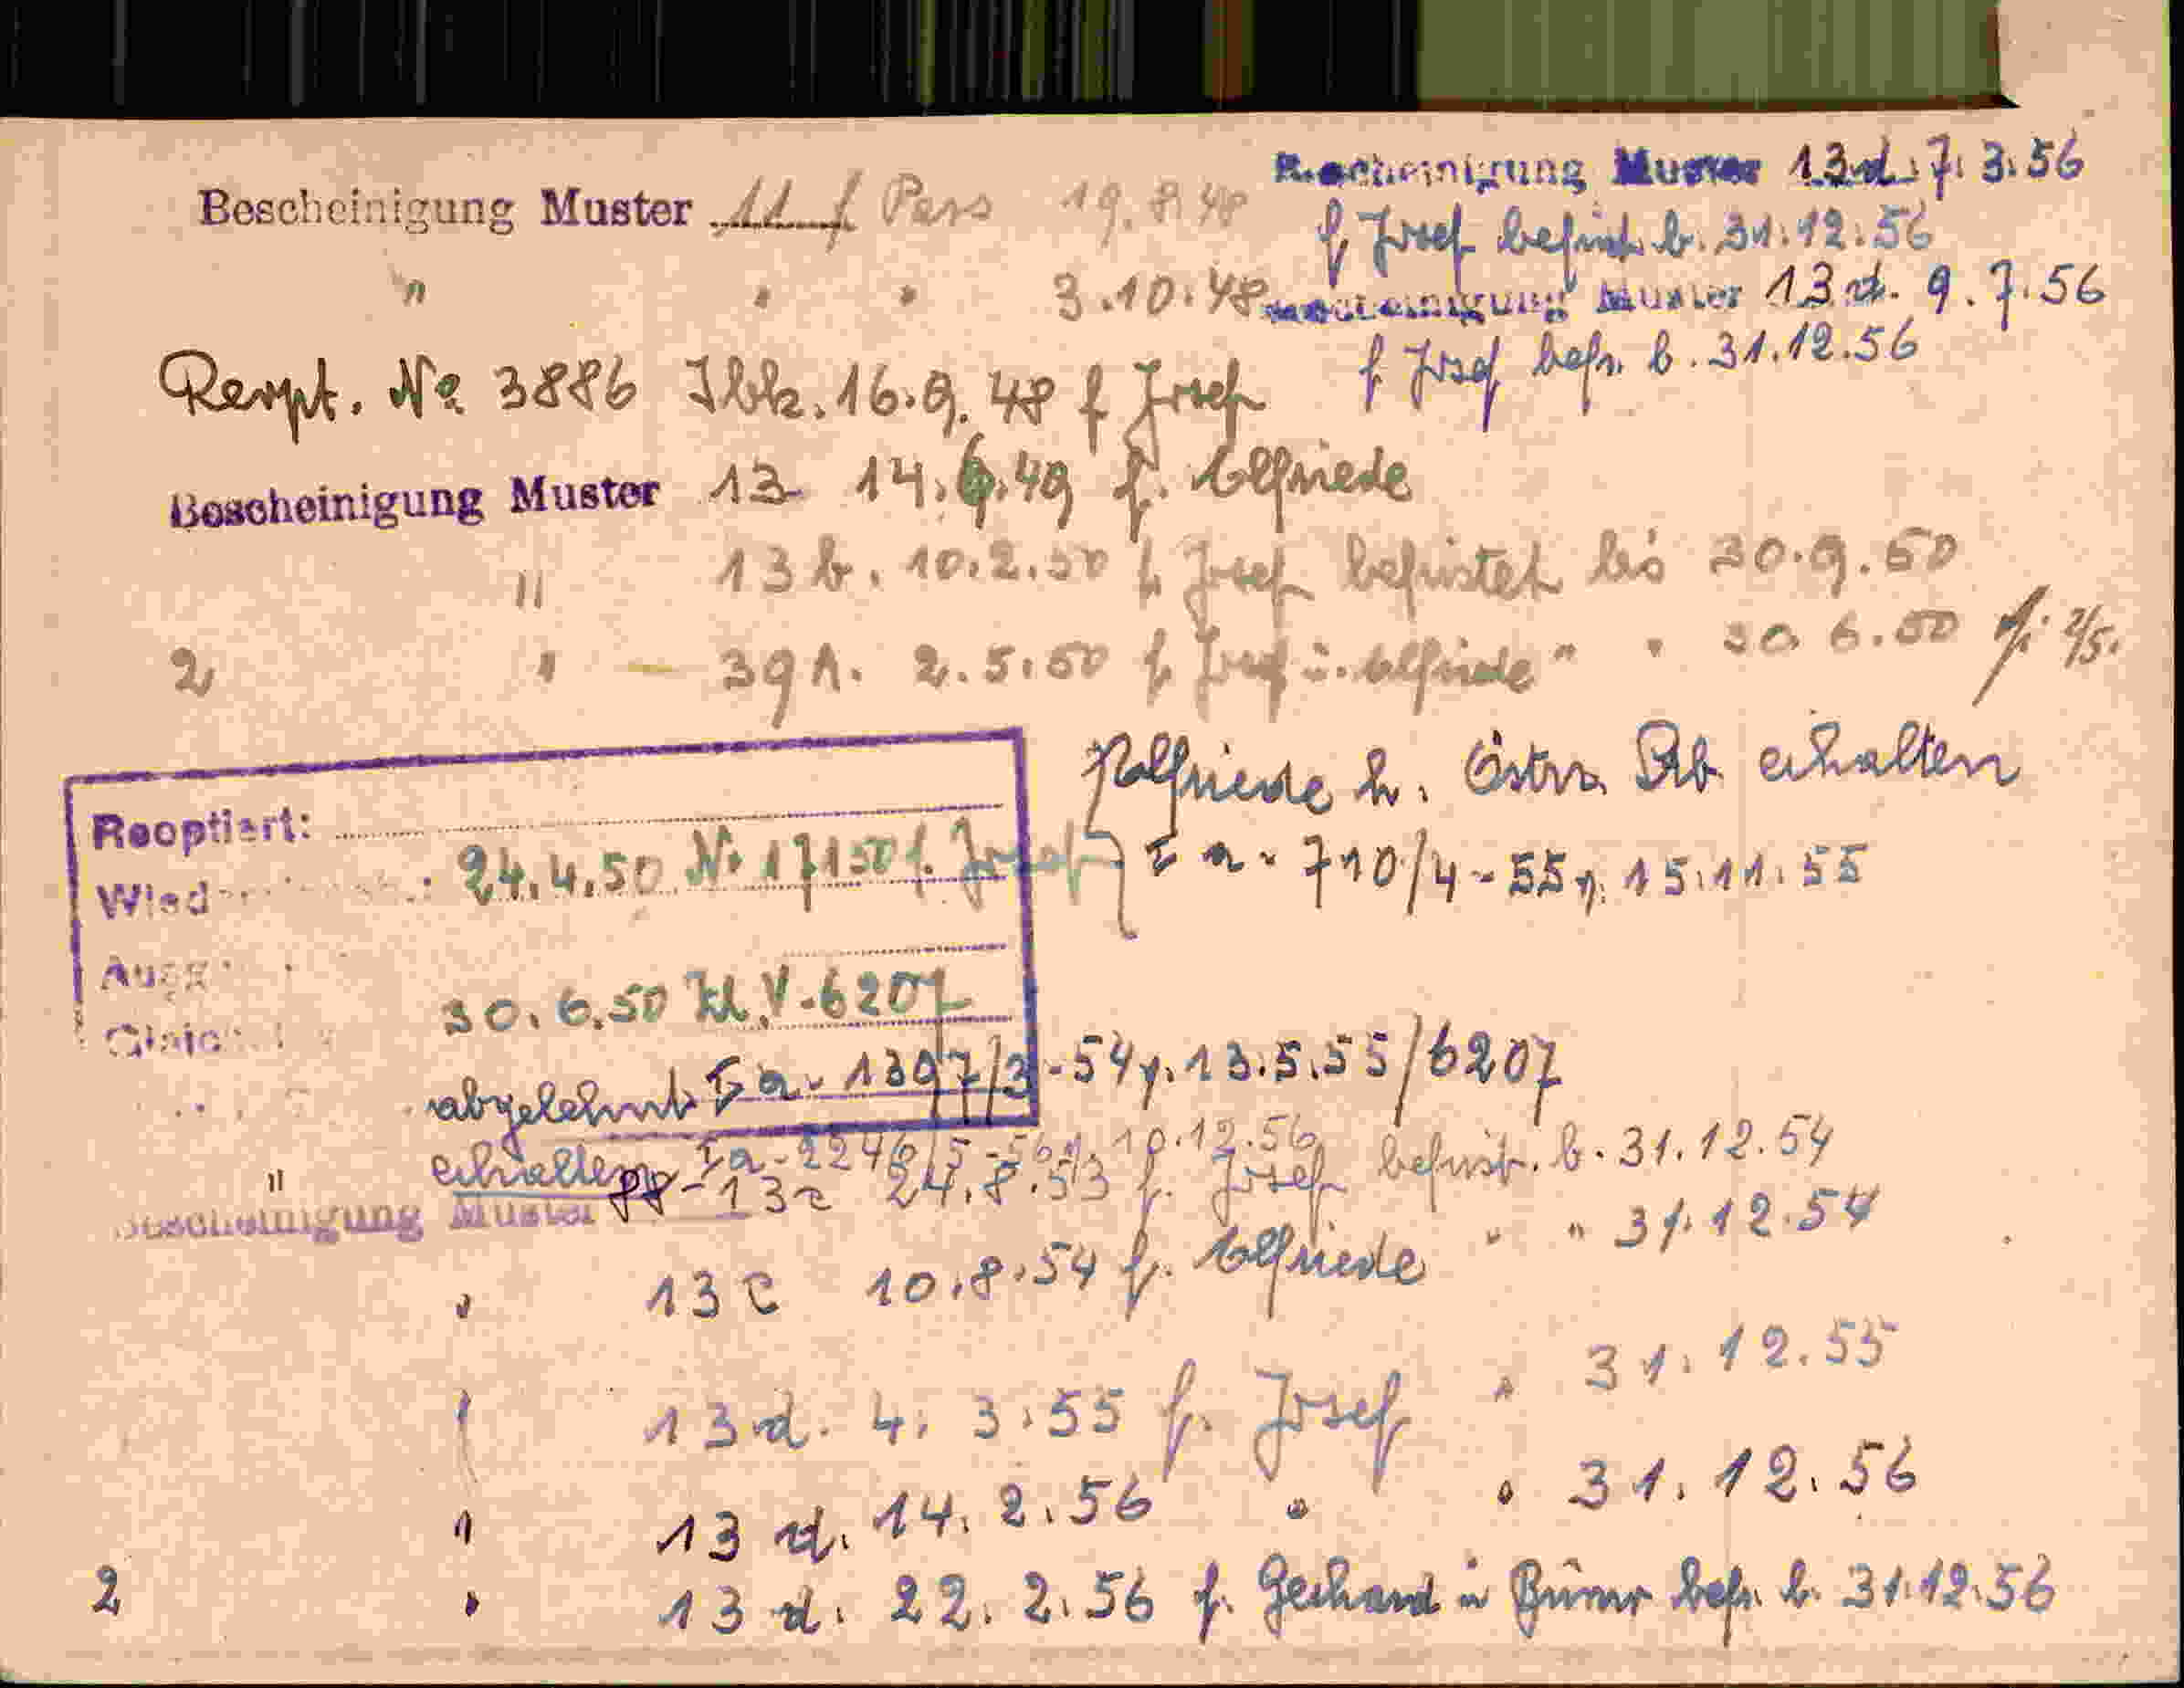 Bescheinigung Muster 11 f Pers 19.8.48
" " " 3.10.48
Bescheinigung Muster 13 d. 7. 3. 56
f Josef befrist. b. 31.12.56
Bescheinigung Muster 13 d. 9. 7. 56
f Josef befr. b. 31.12.56
Reopt. No 3886 Ibk. 16.9.48 f Josef
Bescheinigung Muster 13 14.6.49 f. Alfriede
" 13 b. 10.2.50 f Josef befristet bis 30.9.50
2 " 39 A. 2.5.50 f Josef u. Alfriede " " 30.6.50 2/5.
Alfriede h. Östr. Stb. erhalten
I a - 710/4-55 v. 15.11.55
Reoptiert:
24.4.50 Nr 17150 f. Josef
30.6.50 Zl. V-6207
abgelehnt I a - 1397/3-54 v. 13.5.55/6207
erhalten I a - 2246/5-56 v. 10.12.56
" Bescheinigung Muster 13 c 24.8.53 f. Josef befrist. b. 31.12.54
" 13 c 10.8.54 f. Alfriede " " 31.12.54
" 13 d. 4. 3. 55 f. Josef " 31.12.55
" 13 d. 14. 2. 56 " " 31.12.56
2 " 13 d. 22. 2. 56 f. Gerhard u befr. b. 31.12.56